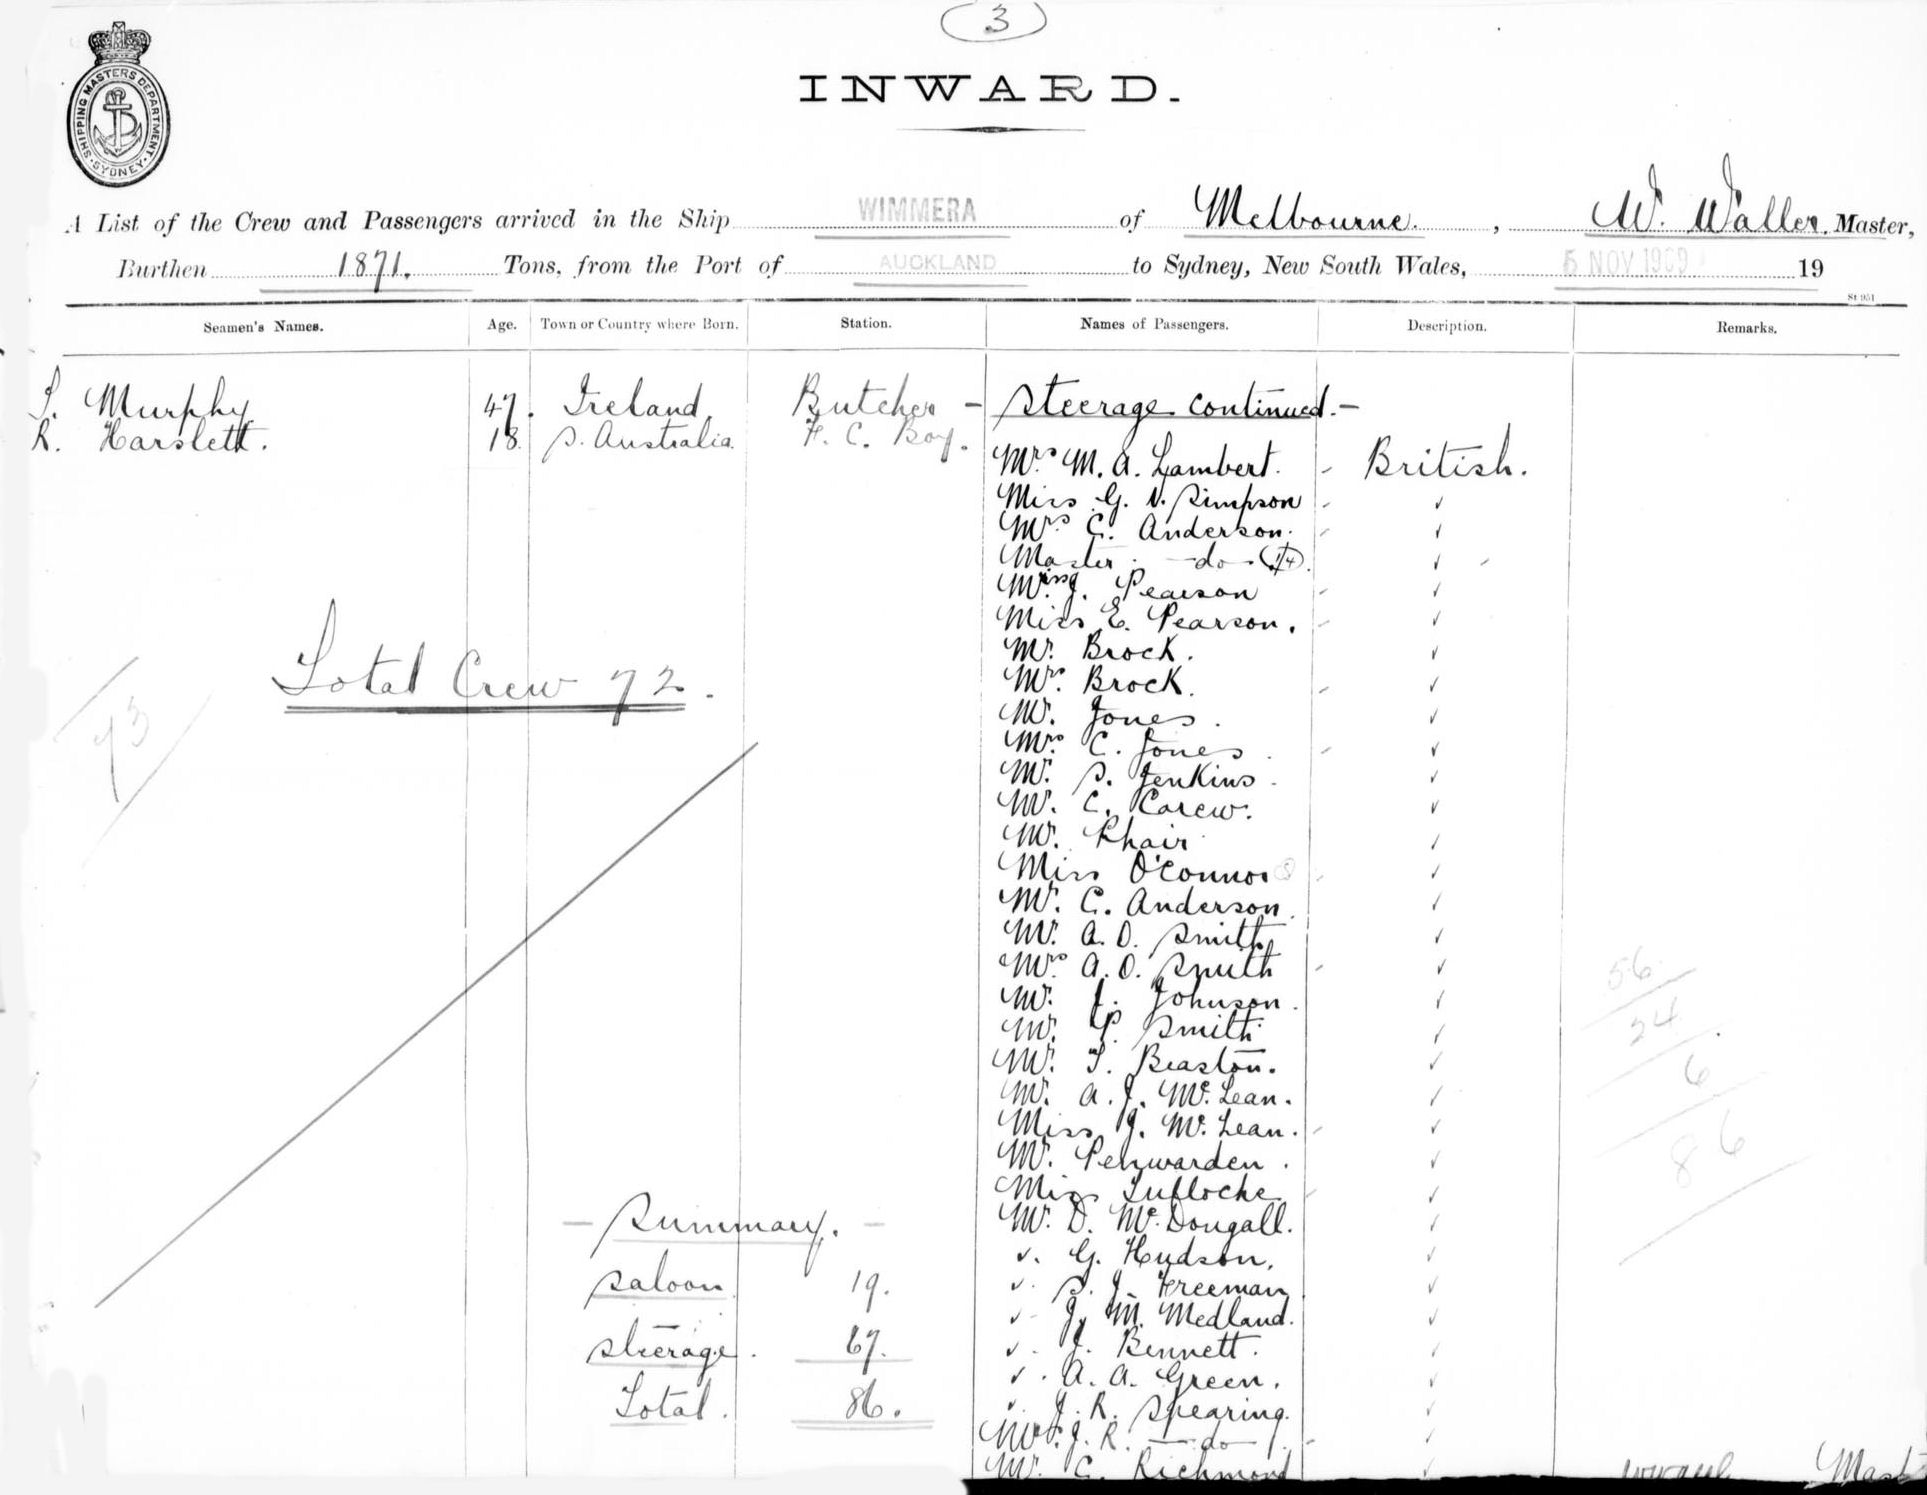 3
INWARD.
SHIPPING MASTERS DEPARTMENT. SYDNEY
A List of the Crew and Passengers arrived in the Ship WIMMERA of Melbourne, W. Waller, Master,
Burthen 1871. Tons, from the Port of AUCKLAND to Sydney, New South Wales, 5 NOV 1909 19
St 951
Seamen's Names. Age. Town or Country where Born. Station. Names of Passengers. Description. Remarks.
Murphy 47. Ireland. Butcher - Steerage continued. -
R. Harslett. 18. S. Australia. F. C. Boy.
Mrs M. A. Lambert. British.
Miss G. V. Simpson
Mrs C. Anderson.
Master - do -
J. Pearson
Miss E. Pearson.
Mr. Brock.
Mrs. Brock.
Mr. Jones.
Mrs. C. Jones
Total Crew 72.
73
Mr. S. Jenkins
Mr. C. Carew.
Mr. Khair
Miss O'Connor
Mr. C. Anderson.
Mr. A. O. Smith
Mrs A. O. Smith
Mr. J. Johnson.
Mr. P. Smith
Mr. T. Beaston.
Mr. A. J. McLean.
Miss J. McLean.
Mr. Penwarden.
Miss
Mr. D. McDougall.
G. Hudson.
S. J. Freeman
J. M. Medland.
J. Bennett.
A. A. Green.
J. R. Spearing.
Mrs. J. R. - do -
Mr. C. Richmond
- Summary. -
Saloon 19.
Steerage. 67.
Total. 86.
56
24
6
86